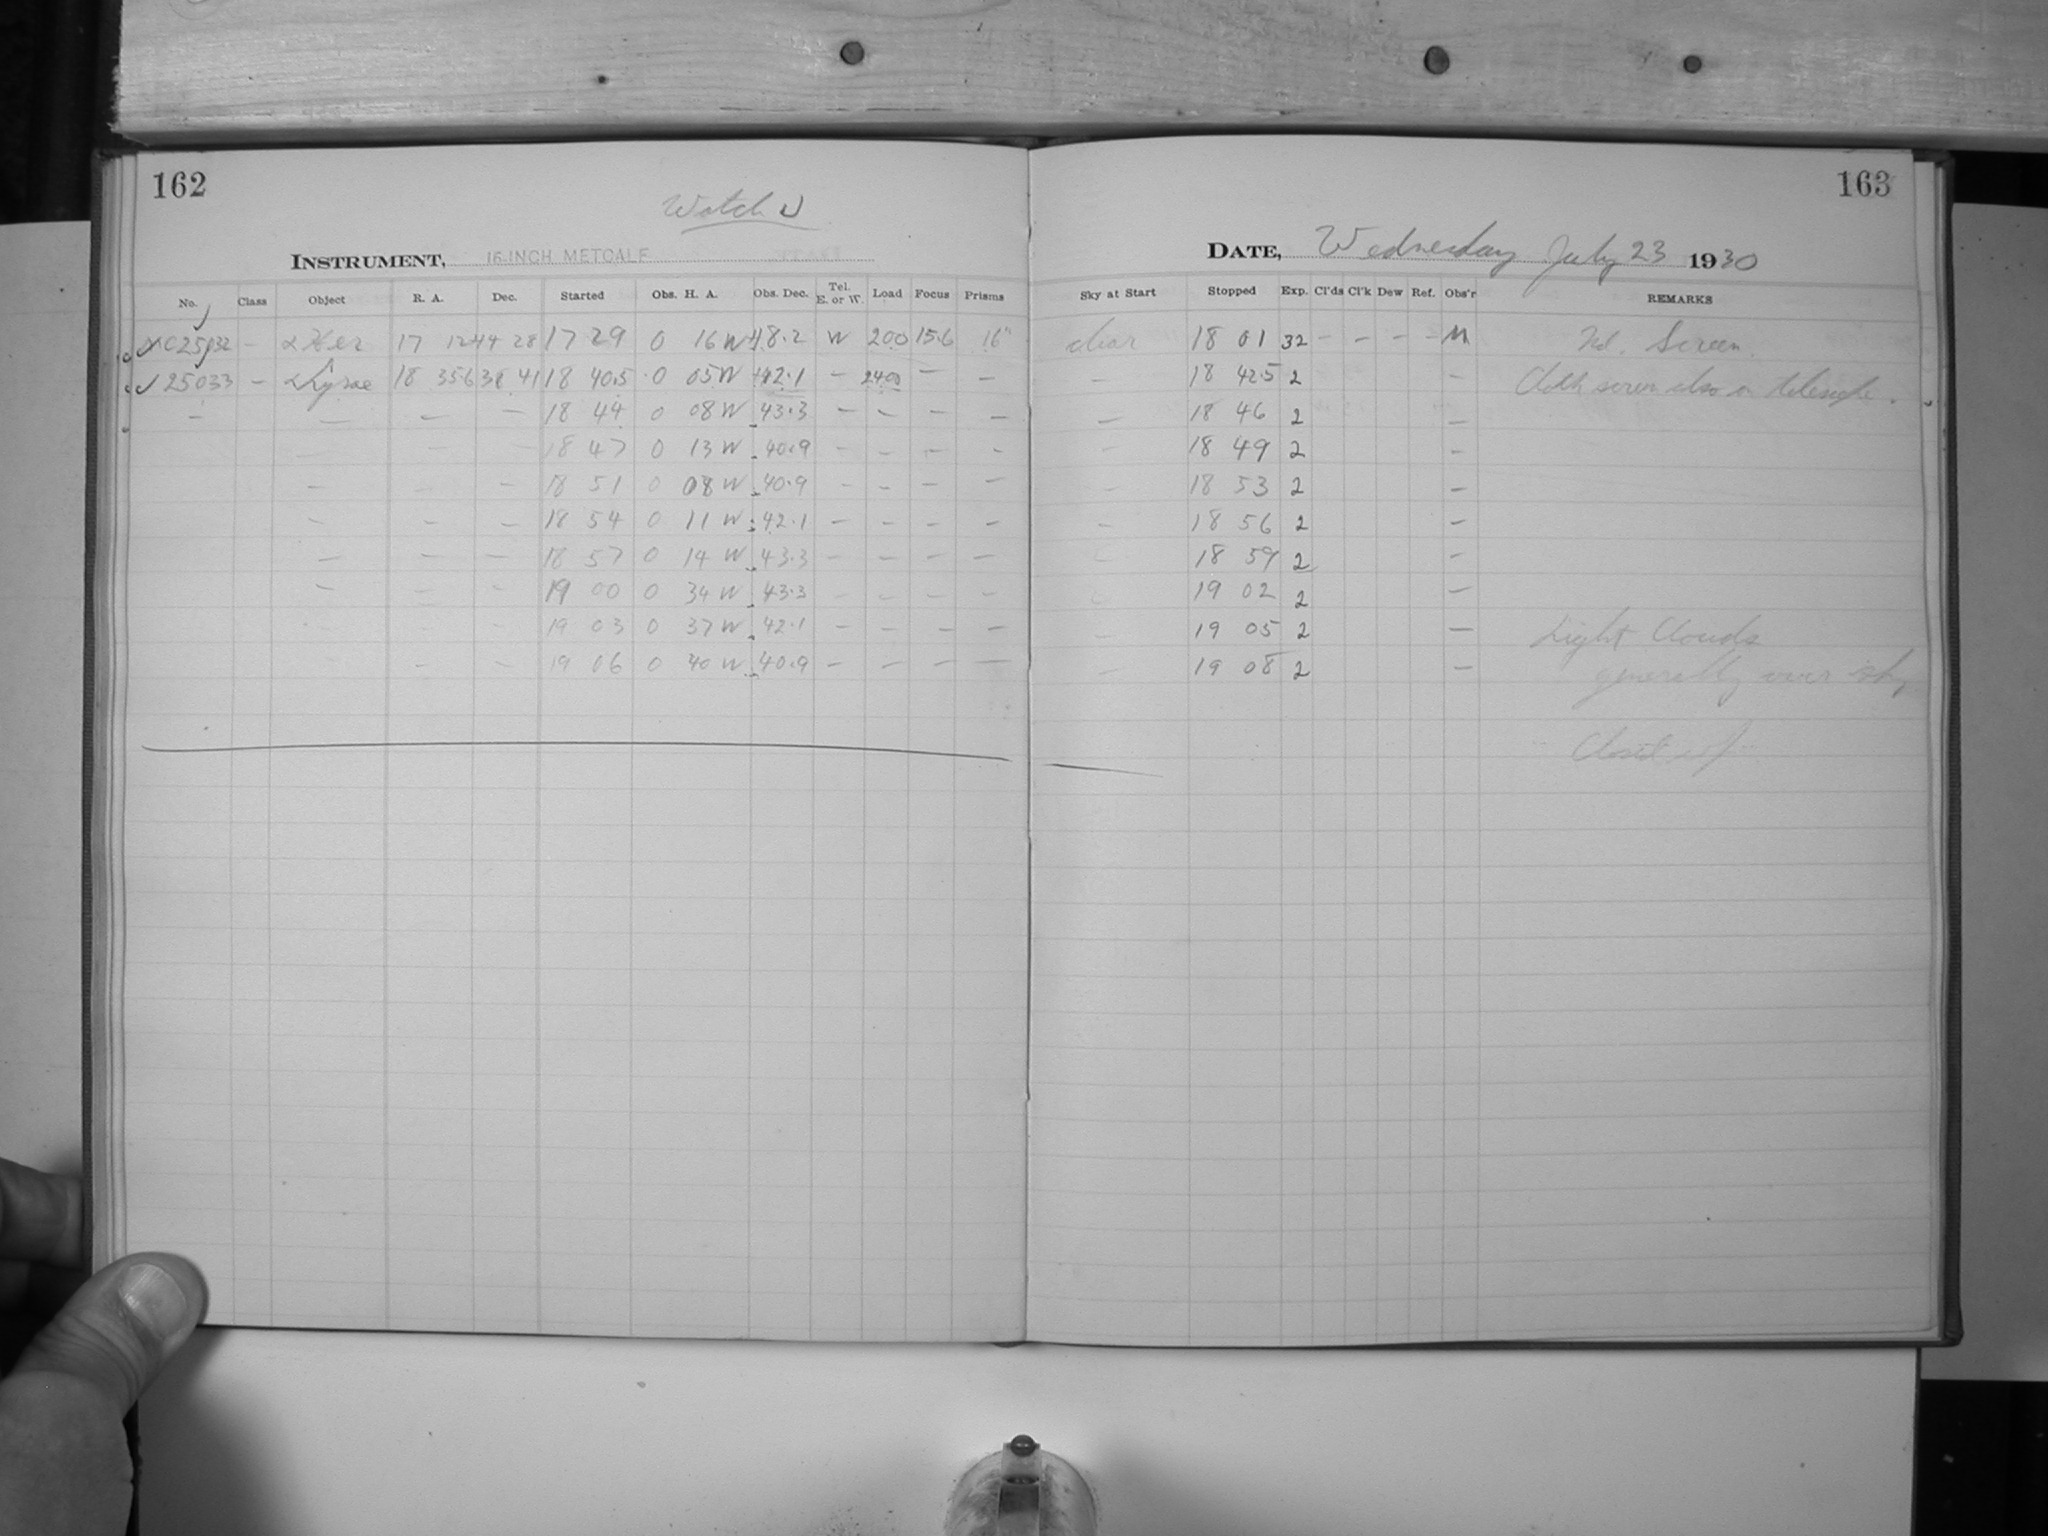 162
Watch
INSTRUMENT, 16-INCH METCALF
No. Class Object R. A. Dec. Started Obs. H. A. Obs. Dec. Tel. E. or W. Load Focus Prisms
α Her 17 29 0 16 W W 200 15.6 16"
25033 – α Lyrae 18 35.6 38 41 18 40.5 0 05 W +42.1 – 2400 – –
– – – – 18 44 0 08 W 43.3 – – – –
18 47 0 13 W 40.9 – – – –
– – – 18 51 0 08 W 40.9 – – – –
– – – 18 54 0 11 W 42.1 – – – –
– – – 18 57 0 14 W 43.3 – – – –
– – – 19 00 0 34 W 43.3 – – – –
19 03 0 37 W 42.1 – – – –
– – 19 06 0 40 W 40.9 – – – –
163
DATE, Wednesday July 23 1930
Sky at Start Stopped Exp. Cl'ds Cl'k Dew Ref. Obs'r REMARKS
clear 18 01 32 – – – – M Screen.
– 18 42.5 2 – Cloth screen also on telescope.
– 18 46 2 –
– 18 49 2 –
– 18 53 2 –
– 18 56 2 –
18 59 2 –
19 02 2 –
– 19 05 2 – Light Clouds
– 19 08 2 – generally over sky
Closed up